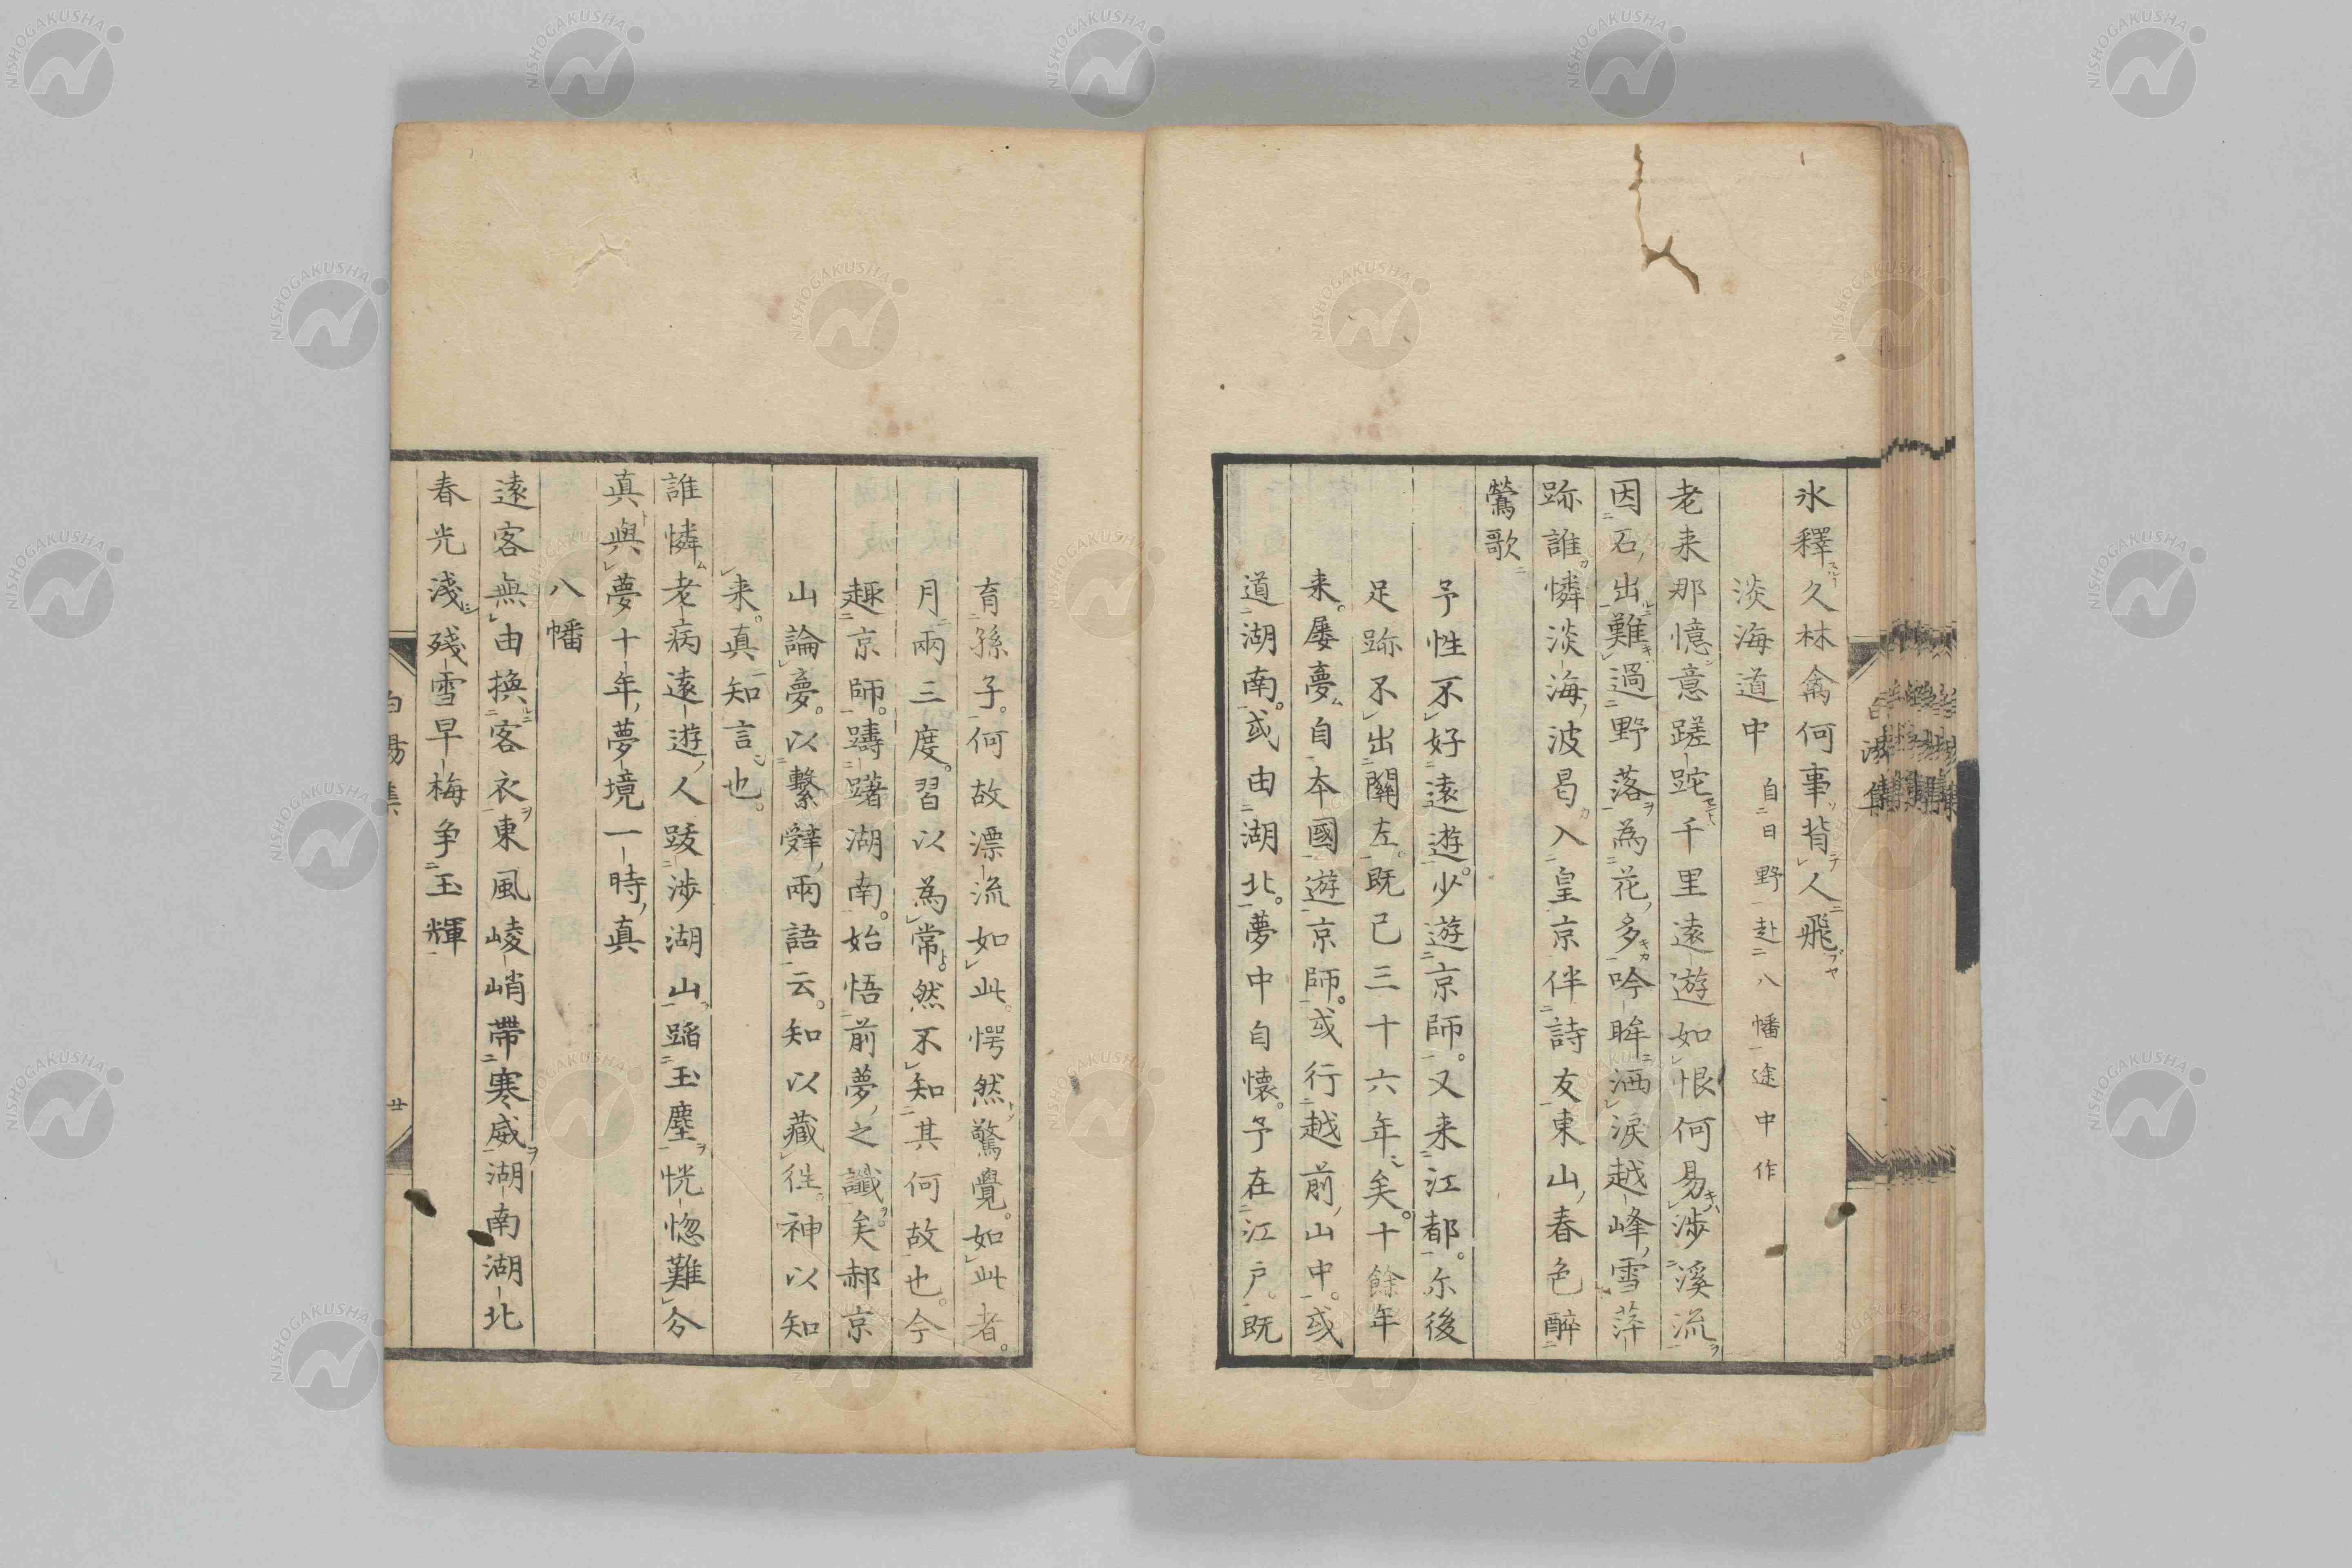 氷釋久林禽何事背人飛
淡海道中 自日野赴八幡途中作
老来那憶意蹉跎千里遠遊如恨何易渉溪流
因石出難過野落為花多吟眸洒涙越峰雪萍
跡誰憐淡海波曷入皇京伴詩友東山春色醉
鶯歌
予性不好遠遊少遊京師又来江都尓後
足跡不出關左既已三十六年矣十餘年
来屡夢自本國遊京師或行越前山中或
道湖南或由湖北夢中自懐予在江戸既
育孫子何故漂流如此愕然驚覺如此者
月兩三度習以為常然不知其何故也今
趣京師躊躇湖南始悟前夢之讖矣郝京
山論夢以繫辭兩語云知以藏往神以知
来真知言也
誰憐老病遠遊人跋渉湖山蹈玉塵恍惚難分
真與夢十年夢境一時真
八幡
遠客無由換客衣東風崚峭帶寒威湖南湖北
春光淺殘雪早梅争玉輝
白湯集
廿
NISHOGAKUSHA